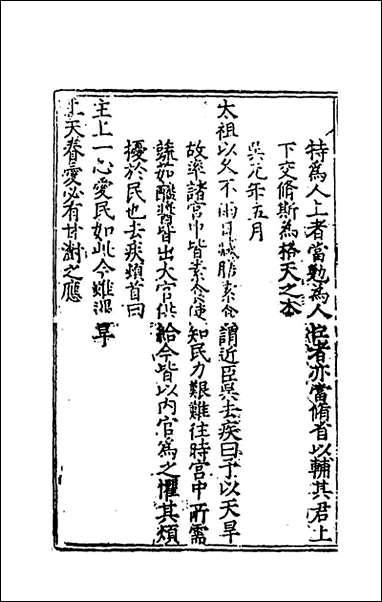 特爲人上者當勉爲人臣者亦當脩省以輔其君上
下交脩斯爲格天之本
吳元年五月
太祖以久不雨日減膳素食謂近臣吳去疾曰予以天旱
故率諸宮中皆素食使知民力艱難往時宮中所需
蔬茹醯醬皆出大官供給今皆以內官爲之懼其煩
擾於民也去疾頓首曰
主上一心愛民如此今雖沠旱
上天眷愛必有甘澍之應